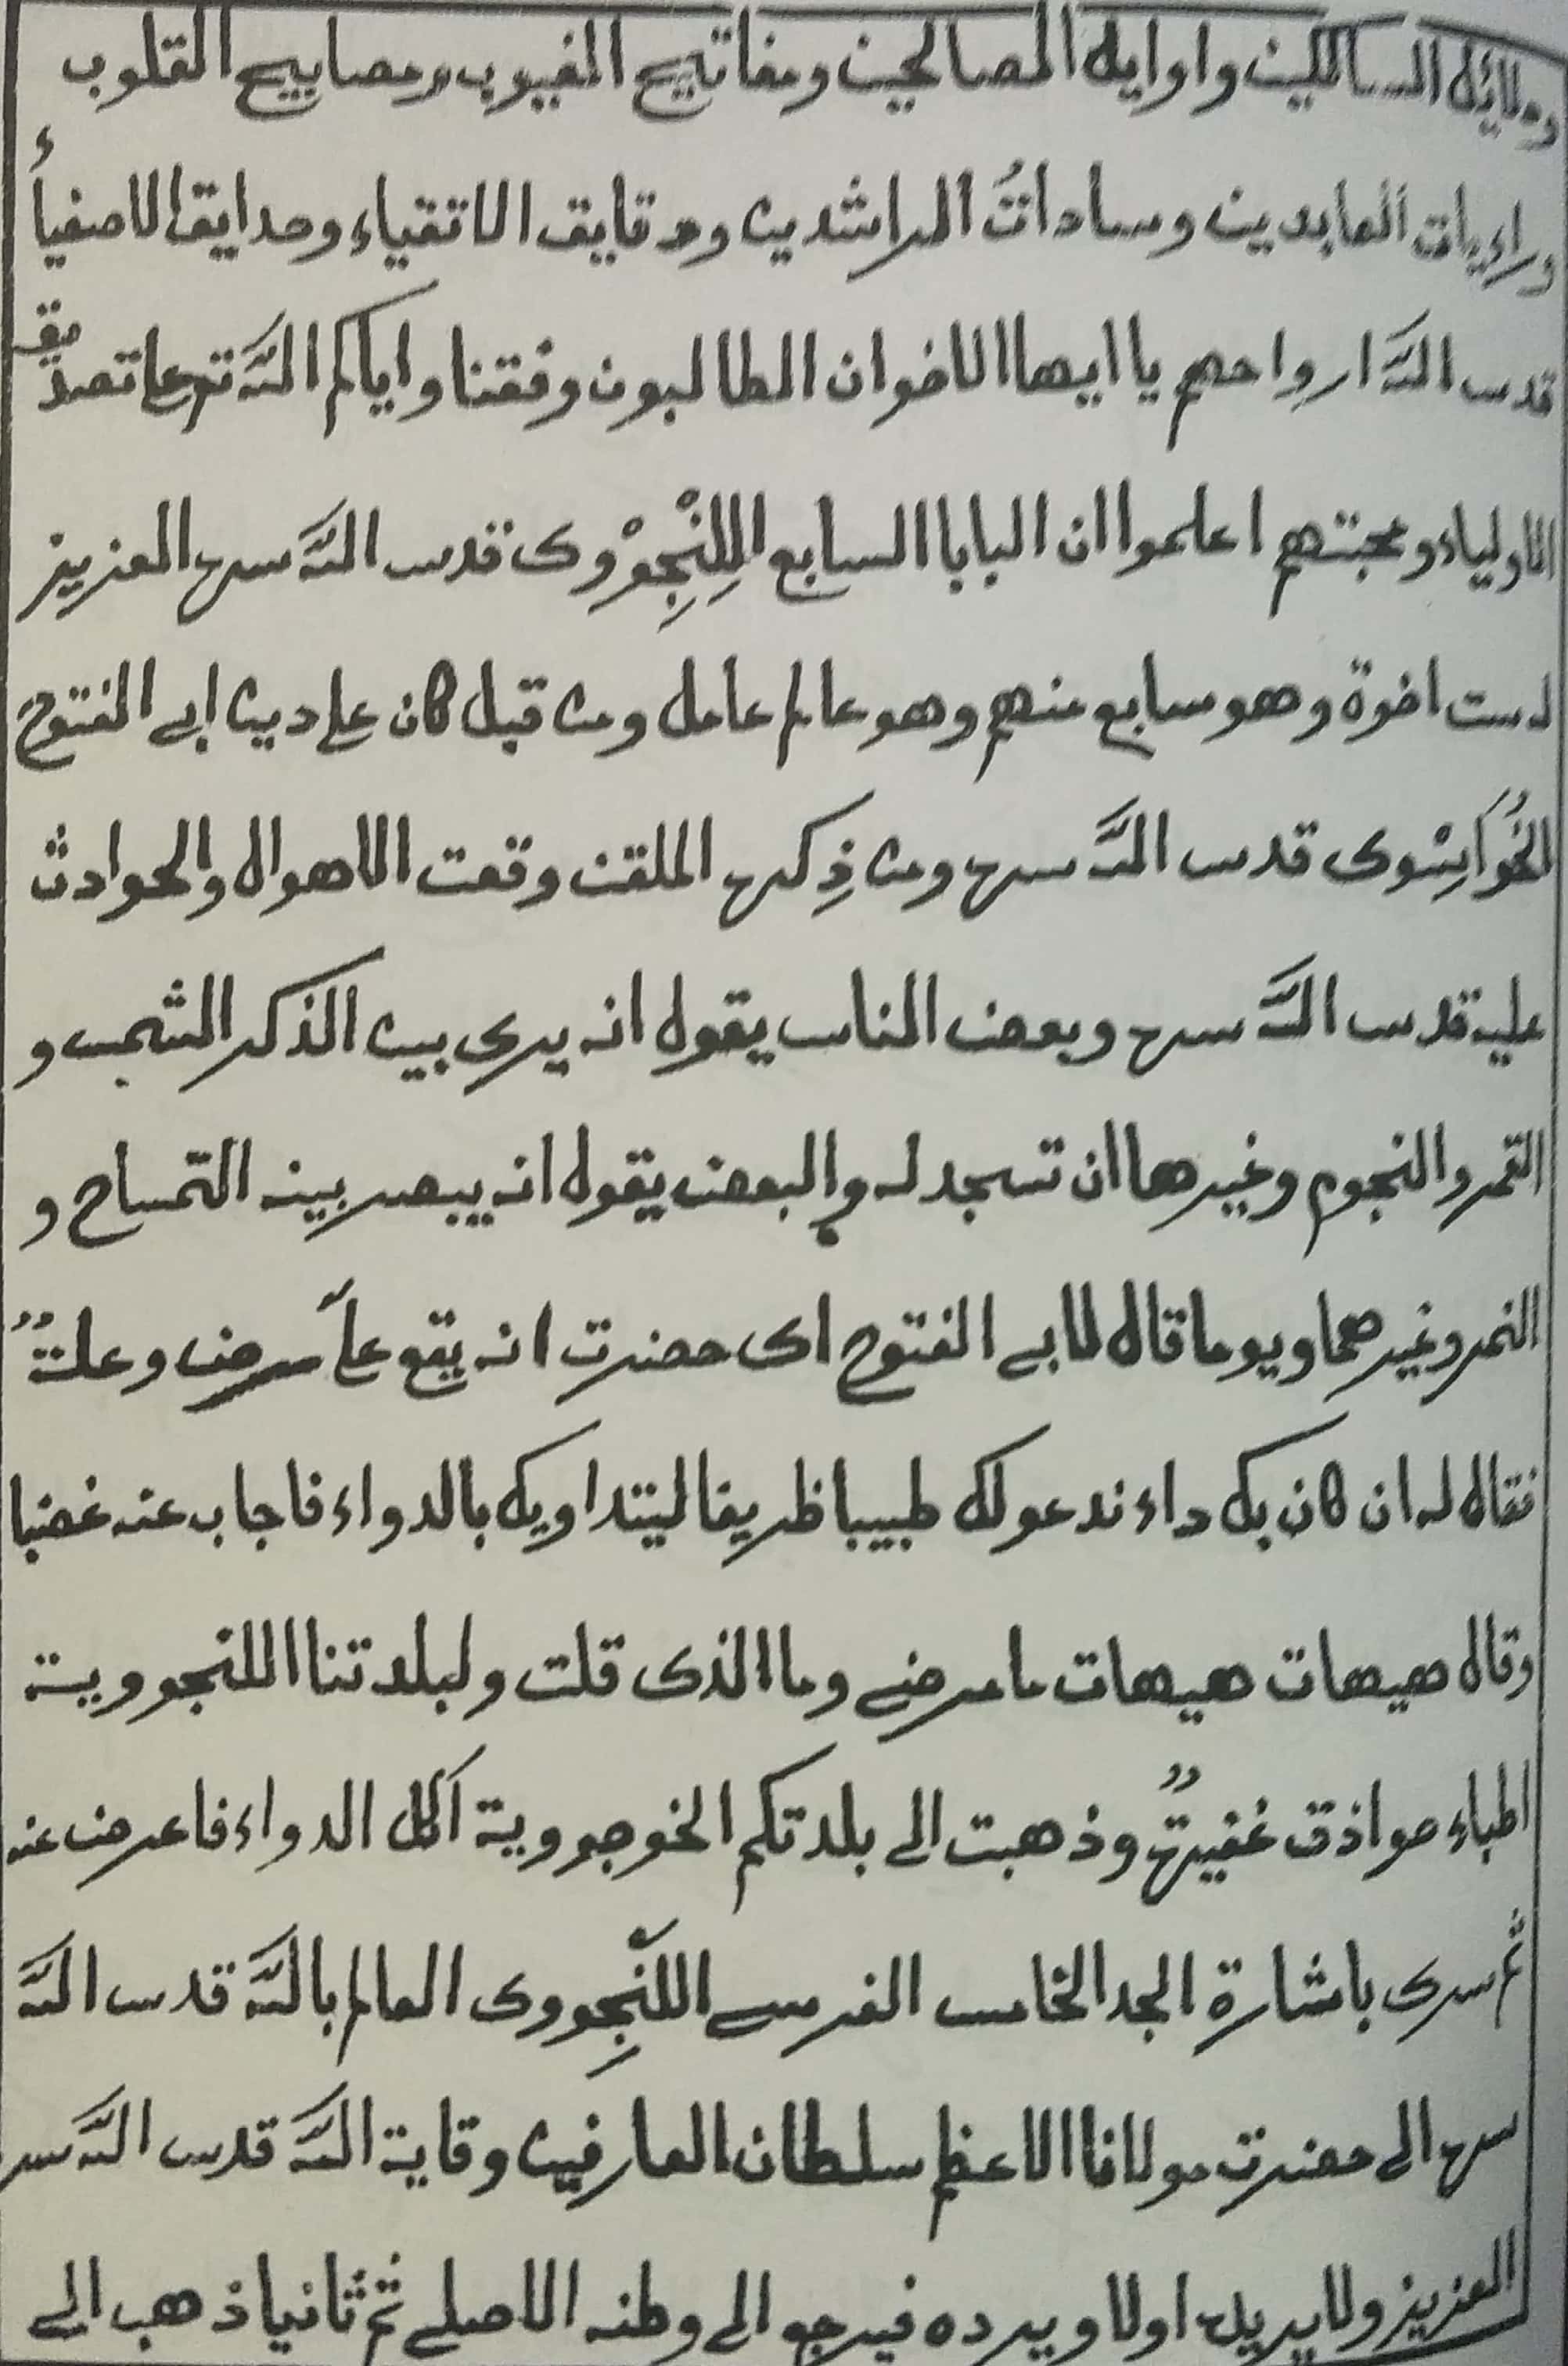 ودلائل السالكين واوايل الصالحين ومفاتيح الغيوب ومصابيح القلوب
وراءيات العابدين وسادات الراشدين ودقايق الاتقياء وحدايق الاصفياء
قدس اللّٰه ارواحهم يا ايها الاخوان الطالبون وفقنا واياكم اللّٰه تع على تصديق
الاولياء ومحبتهم اعلموا ان البابا السابع اللِلنْجِوْوى قدس اللّٰه سره العزيز
لست اخوة وهو سابع منهم وهو عالم عامل ومن قبل كان على دين ابى الفتوح
الخُوَانِسْوى قدس اللّٰه سره ومن ذِكره الملقن وقعت الاهوال والحوادث
عليه قدس اللّٰه سره وبعض الناس يقول انه يرى بين الذكر الشمس و
القمر والنجوم وغيرها ان تسجد له والبعض يقول انه يبصر بينه التمساح و
النمر وغيرهما ويوما قال لابى الفتوح اى حضرت انه يقع علىّ مرض وعلةٌ
فقال له ان كان بك داء ندعو لك طبيبا ظريفا ليتداويك بالدواء فاجاب عنه غضبا
وقال هيهات هيهات ما مرضى وما الذى قلت ولبلدتنا اللنجووية
اطباء حواذق غفيرةٌ وذهبت الى بلدتكم الخوجووية آكل الدواء فاعرض عنه
ثم سرى باشارة الجد الخامس الفرسى اللّنجِووى العالم باللّٰه قدس اللّٰه
سره الى حضرت مولانا الاعظم سلطان العارفين وقاية اللّٰه قدس اللّٰه سره
العزيز ولا يريد اولا ويرده فيرجو الى وطنه الاصلى ثم ثانيا ذهب الى